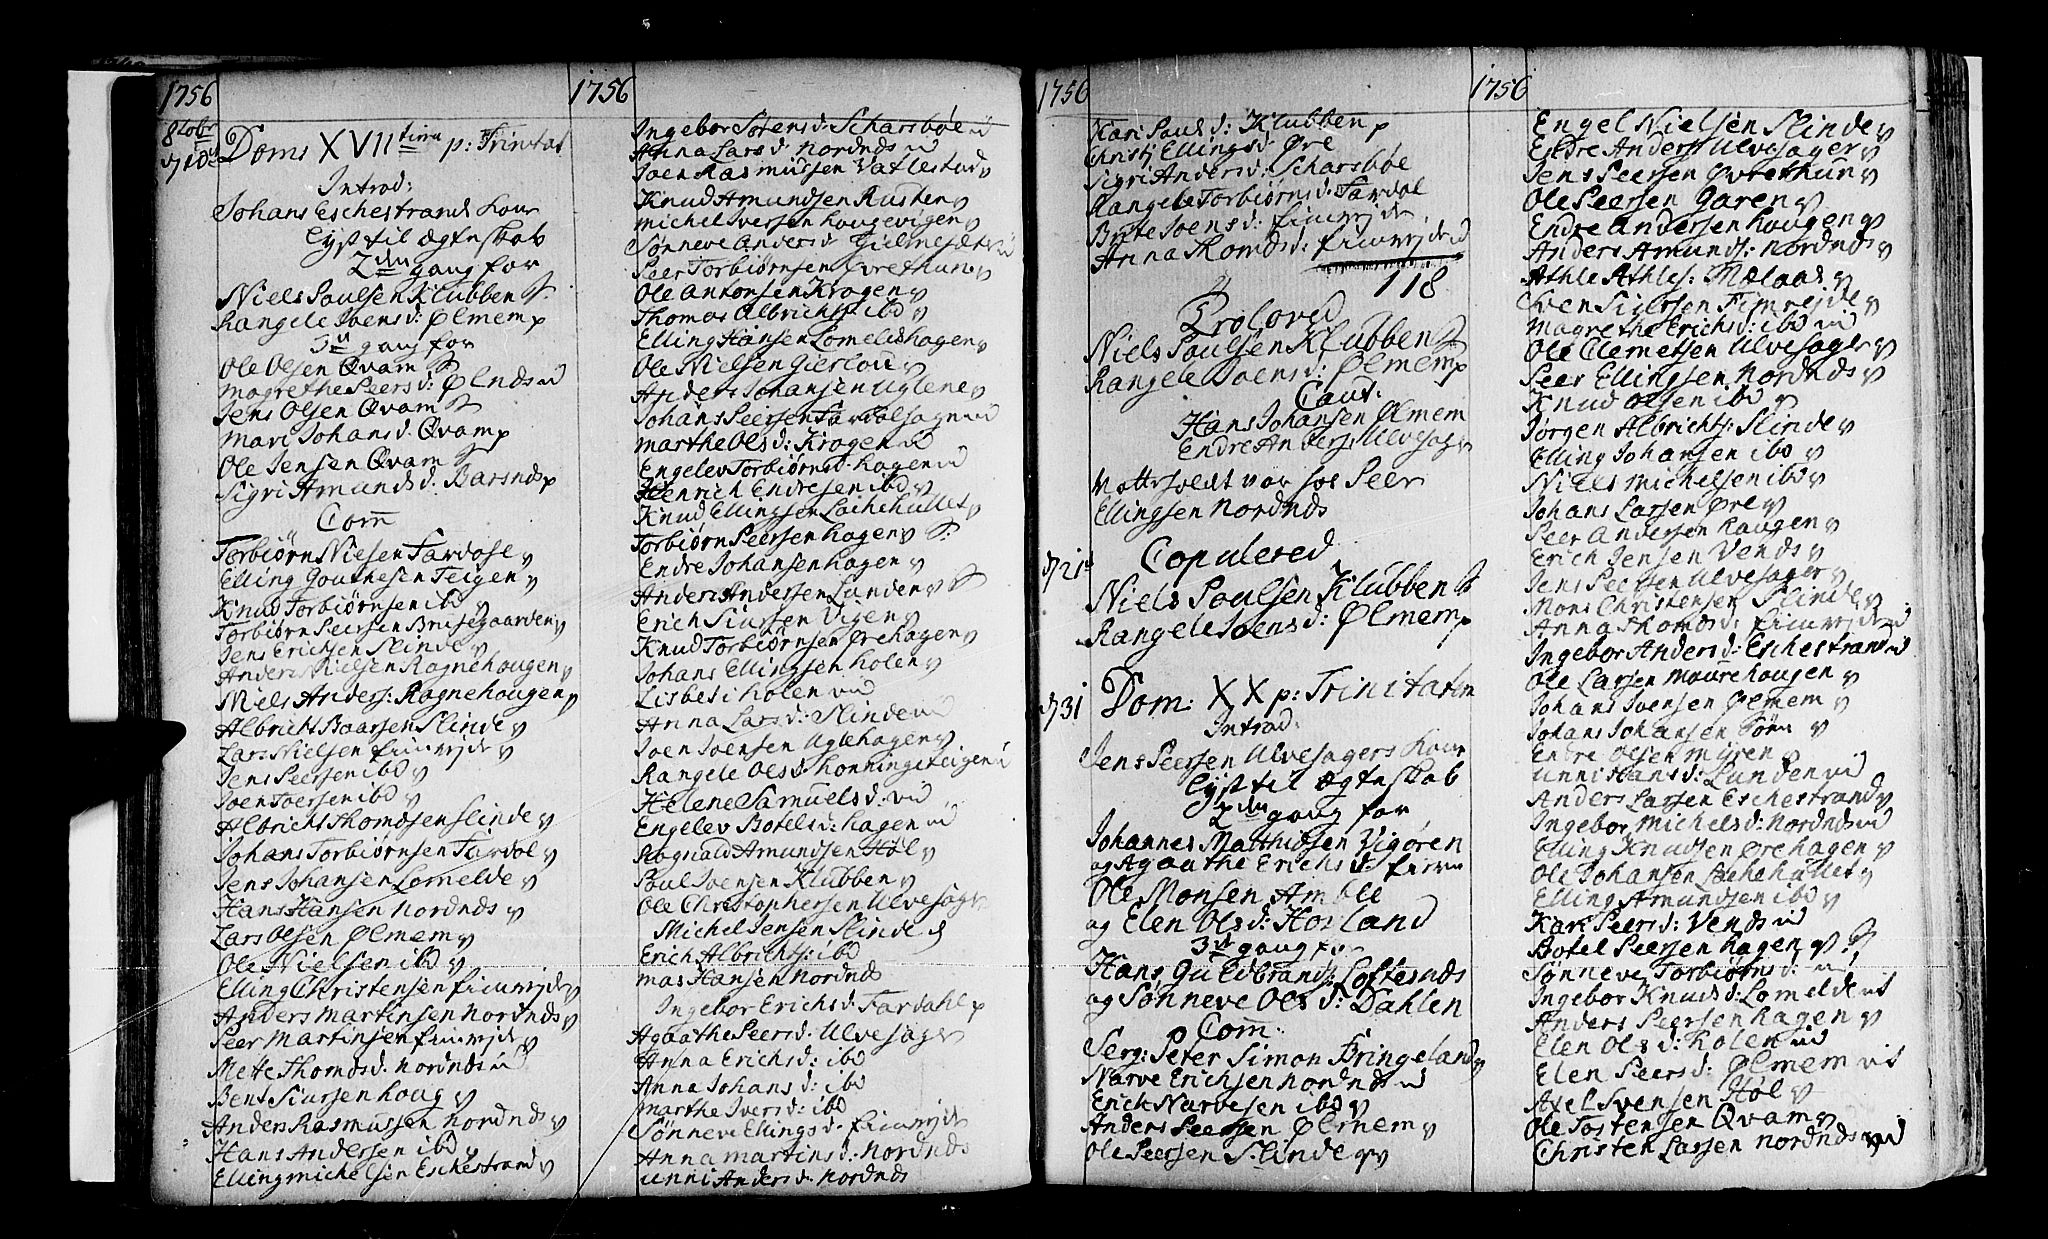 1756
8tobr
Dom: XVII p: Trinitat
Introd:
Johans Eschestrands Kone
Lyst til Ægteskab
2den gang for
Niels Paulsen Klubben
Rangele Joens d: Ølmem
3die gang for
Ole Olsen Qvam
Magrethe Peers d: Ølnds
Jens Olsen Qvam
Mari Johans d. Qvam
Ole Jensen Qvam
Sigri Amunds d. Barsnds
Com
Torbiørn Nielsen Fardal
Elling Gouthesen Teigen
Knud Torbiørnsen ibd
Torbiørn Peersen Brisegaarden
Jens Erichsen Slinde
Anders Nielsen Ragnehougen
Niels Anders: Ragnehougen
Albricht Baarsen Slinde
Lars Nielsen Fimrejde
Jens Peersen ibd
Joen Joersen ibd
Albricht Thomdsen Slinde
Johans Torbiørnsen Fardal
Jens Johansen Lomelde
Hans Hansen Nordnds
Lars Olsen Ølmem
Ole Nielsen ibd
Elling Christensen Fimrejde
Anders Martinsen Nordnds
Peer Martinsen Fimrejde
Mette Thomds d. Nordnds
Bent Siursen Houg
Anders Rasmussen Nordnds
Hans Andersen ibd
Elling Michelsen Eschestrand
1756
Ingebor Sørens d: Scharsbøe
Anna Lars d. Nordnds
Joen Rasmussen Vatlestad
Knud Amundsen Rusten
Michel Iversen Hougevigen
Sønneve Anders d.
Peer Torbiørnsen Øvrethun
Ole Antonsen Krogen
Thomas Albrichts: ibd
Elling Hansen Lomeldshagen
Ole Nielsen Gierlou
Anders Johansen Uglene
Johans Peersen Fardal
Marthe Ols d: Krogen
Engelev Torbiørns d. Hagen
Henrich Endresen ibd
Knud Ellingsen Lochehullet
Torbiørn Peersen Hagen
Endre Johansen Hagen
Anders Andersen Lunden
Erich Siursen Vigen
Knud Torbiørnsen Ørehagen
Johans Ellingsen Holen
Lisbet i Holen
Anna Lars d: Slinde
Joen Joensen Uglehagen
Rangele Ols d. Honningsteigen
Helene Samuels d:
Engelev Botels d: Hagen
Rognald Amundsen Høl
Paul Joensen Klubben
Ole Christophersen Ulvesager
Michel Jensen Slinde
Erich Albrichts: ibd
Mas Hansen Nordnds
Ingebor Erichs d: Fardahl
Agaathe Peers d: Ulvesager
Anna Erichs d: ibd
Anna Johans d: ibd
Marthe Ivers d: ibd
Sønneve Ellings d. Fimrejde
Anna Martins d: Nordnds
Unni Anders d. Nordnds
1756
Kari Pauls d: Klubben
Christj Ellings d. Øre
Sigri Anders d: Scharsbøe
Rangele Torbiørns d: Fardal
Brite Joens d: Fimrejde
Anna Thomds d: Fimrejde
118
Troloved
Niels Paulsen Klubben
Rangele Joens d: Ølmem
Caut:
Hans Johansen Ølmem
Endre Anders: Ulvesager
Peer
Ellingsen Nordnds
Copulered
Niels Paulsen Klubben
Rangele Joens d: Ølmem
31 Dom: XX p: Trinitatem
Introd:
Jens Peersen Ulvesagers Kone
Lyst til Ægteskab
2den gang for
Johannes Matthidsen Vigøren
og Agaathe Erichs d.
Ole Monsen Amble
og Elen Ols d: Hovland
3die gang for
Hans Guldbrands: Loftesnds
og Sønneve Ols d: Dahlen
Com:
Serg: Peter Simon Fringeland
Narve Erichsen Nordnds
Erick Narvesen ibd
Anders Peersen Ølmem
Ole Peersen Slinde
1756
Engel Nielsen Slinde
Endre Anders: Ulvesager
Jens Peersen Øvrethun
Ole Peersen Garen
Endre Andersen Hougen
Anders Amunds: Nordnds
Athle Athles: Mælaas
Sven Siursen Fimrejde
Magrethe Erichs d: ibd
Ole Clemetsen Ulvesager
Peer Ellingsen Nordnds
Knud Olsen ibd
Jørgen Albrichts: Slinde
Elling Johansen ibd
Niels Michelsen ibd
Johans Larsen Øre
Peer Andersen Haugen
Erich Jensen Vends
Jens Peersen Ulvesager
Mons Christensen Slinde
Anna Thomds d: Fimrejde
Ingebor Anders d: Eschestrand
Ole Larsen Maurehougen
Johans Iversen Ølmem
Johans Johansen Sørn
Endre Olsen Myren
Unni Hans d: Lunden
Anders Larsen Eschestrand
Ingebor Michels d: Nordnds
Elling Knudsen Ørehagen
Ole Johansen Lochehullet
Elling Amundsen ibd
Kari Peers d: Vends
Botel Peersen Hagen
Sønneve Torbiørns d:
Ingebor Knuds d: Lomelde
Anders Peersen Hagen
Elen Ols d: Holen
Elen Peers d: Ølmem
Axel Svensen Høl
Ole Tostensen Qvam
Christen Larsen Nordnds